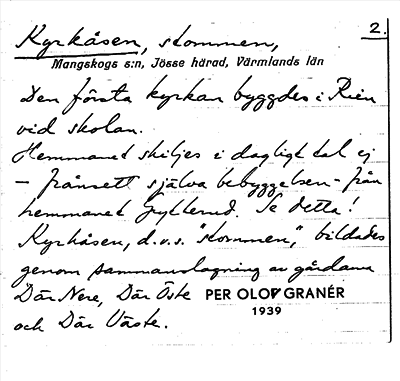 2.
Kyrkåsen, stommen,
Mangskogs s:n, Jösse härad, Värmlands län
Den första kyrkan byggdes i Rien
vid skolan.
Hemmanet skiljes i dagligt tal ej
– frånsett själva bebyggelsen – från
hemmanet Gylterud. Se detta!
Kyrkåsen, d.v.s. "stommen," bildades
genom sammanslagning av gårdarna
Där Nere, Där Öste PER OLOF GRANÉR
och Där Väste. 1939